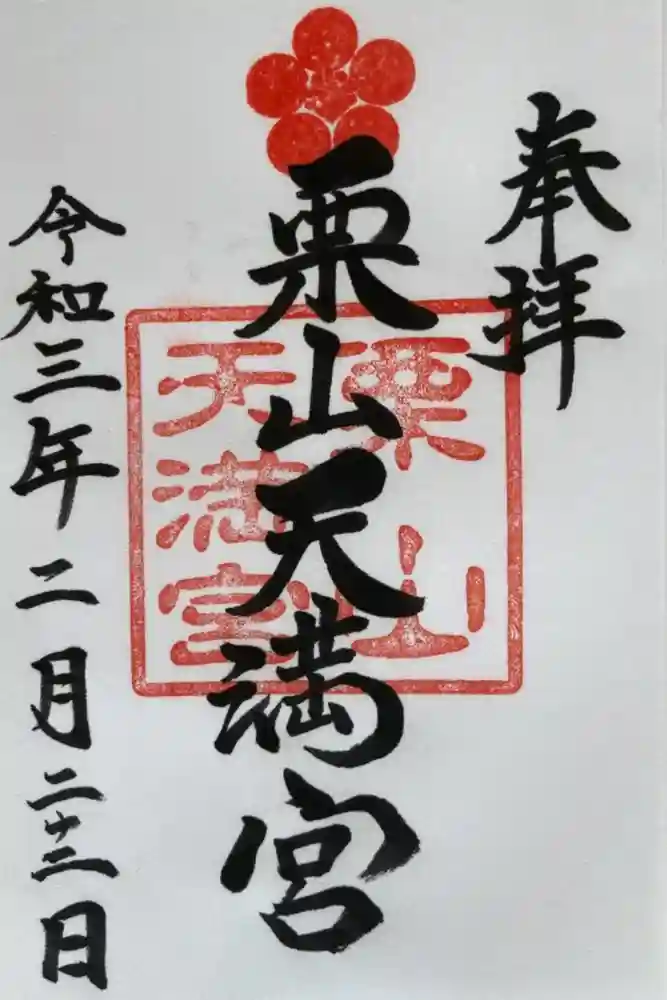 奉拝
栗山天満宮
令和三年二月二十二日
栗山
天満宮